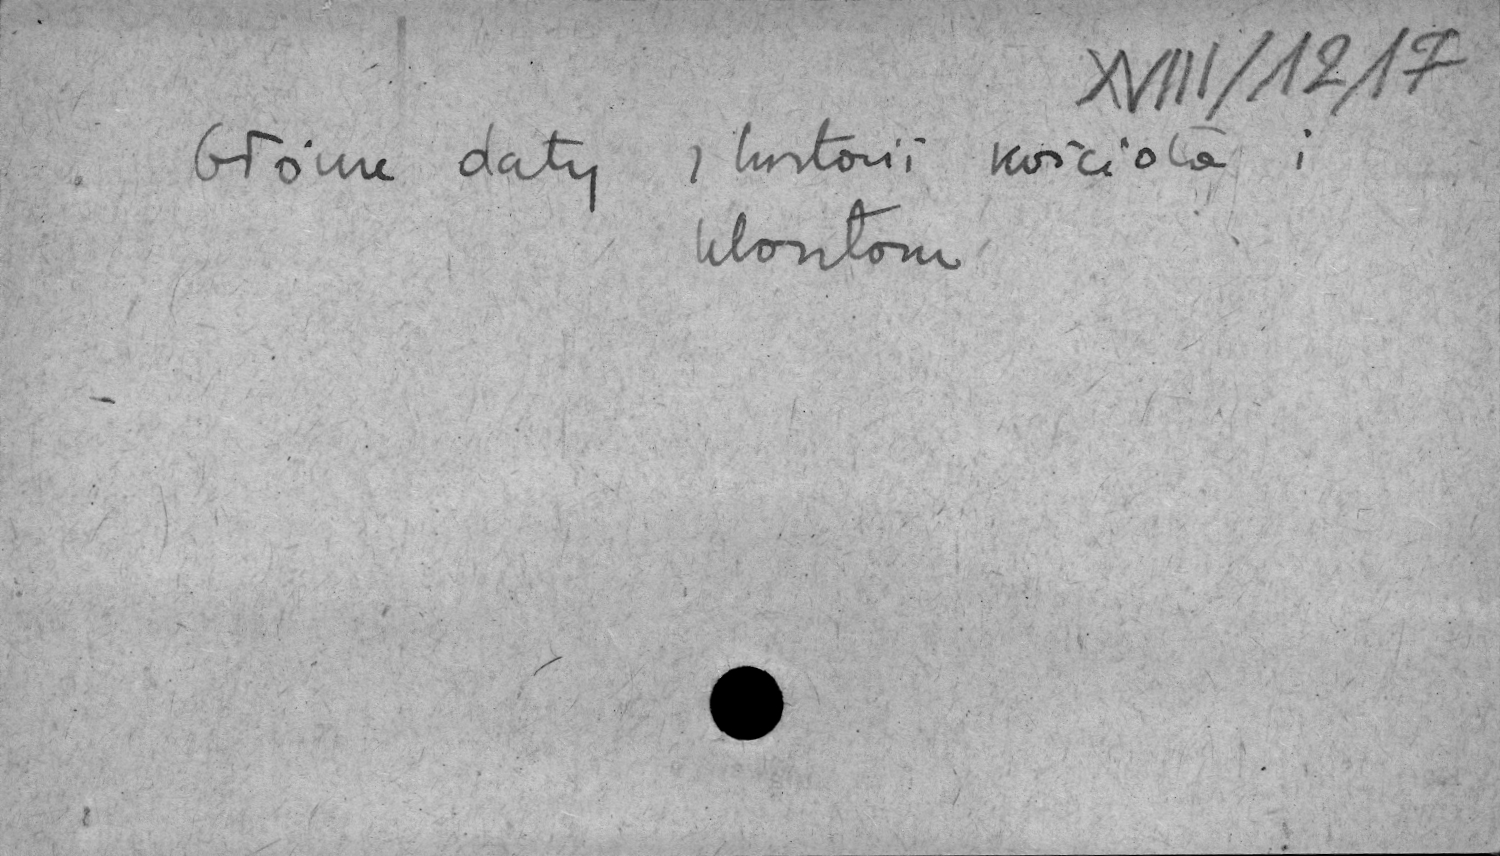 XVIII/1217
Główne daty z historii kościoła i
klasztoru